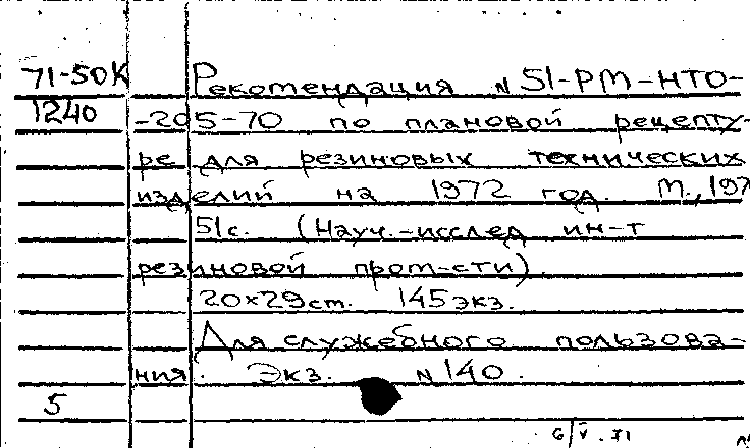 71-50К Рекомендация № 51-РМ-НТО-
1240 -205-70 по плановой рецепту-
ре для резиновых технических
изделий на 1972 год. М., 197
51с. (Науч.-исслед ин-т
резиновой пром-сти)
20×29см. 145экз.
Для служебного пользова-
ния. Экз. №140.
5
6/V.71